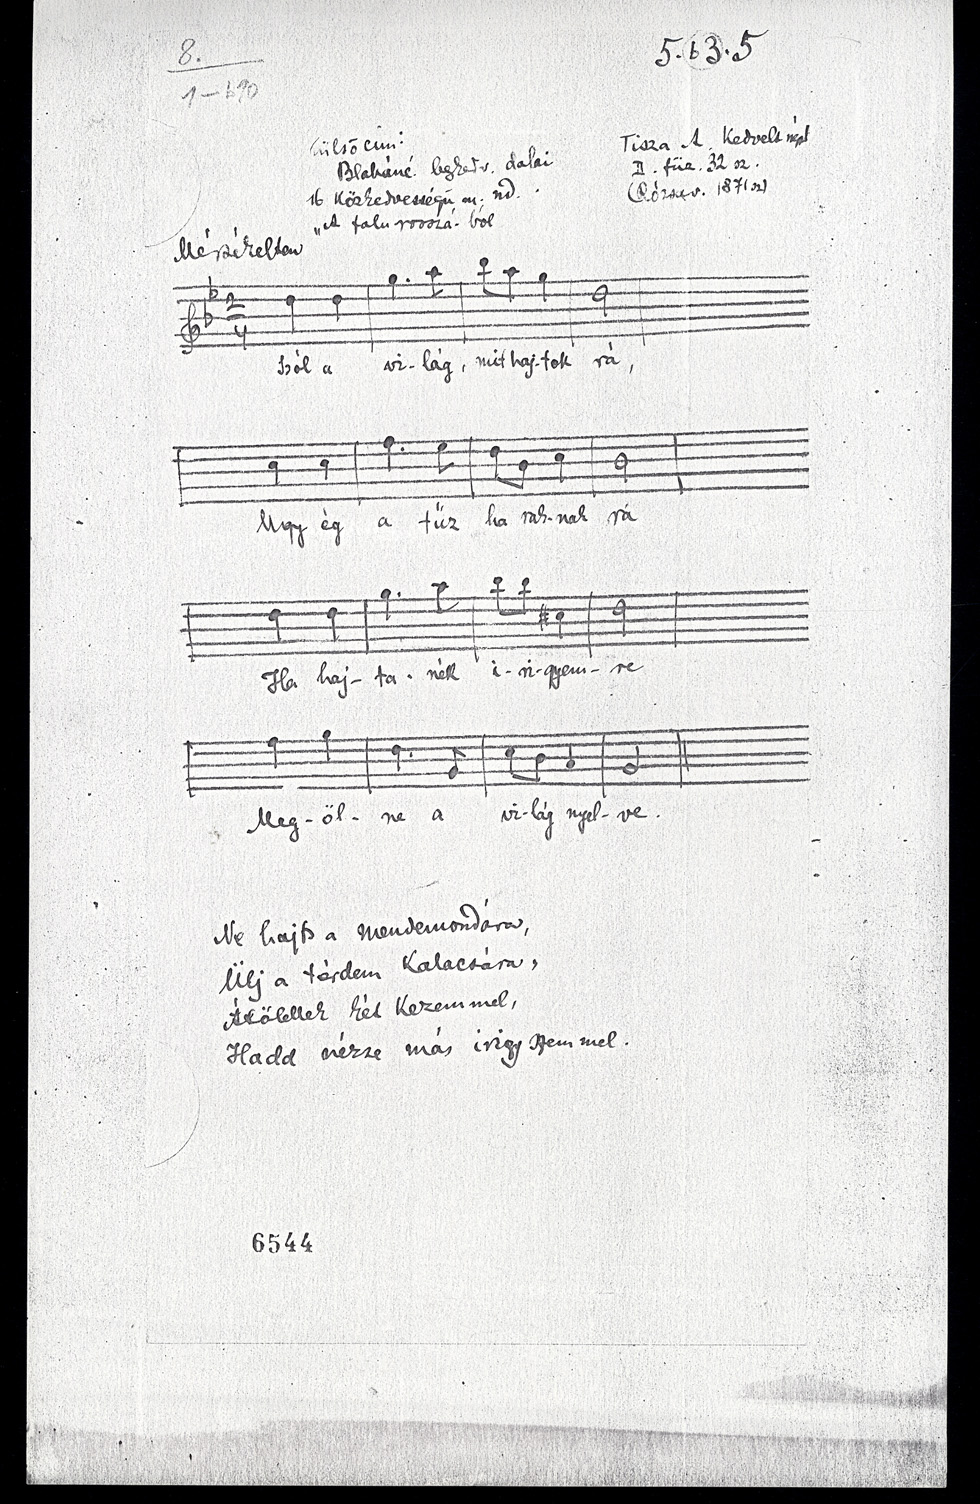 8.
5.b3.5
1-690
Külső cim:
Blaháné legkedv. dalai
16 Közkedvességü m. nd.
"A falu rosszá-ból
Tisza A. Kedvelt népd
II. füz. 32 sz.
(Rózsav. 1871 sz)
Mérsékelten
2/4
Szól a vi-lág, mit haj-tok rá,
Ugy ég a tűz ha rak-nak rá
Ha haj-ta-nék i-ri-gyem-re
Meg-öl-ne a vi-lág nyel-ve.
Ne hajts a mendemondára,
Ülj a térdem Kalacsára,
Átölellek két kezemmel,
Hadd nézze más irigy szemmel.
6544